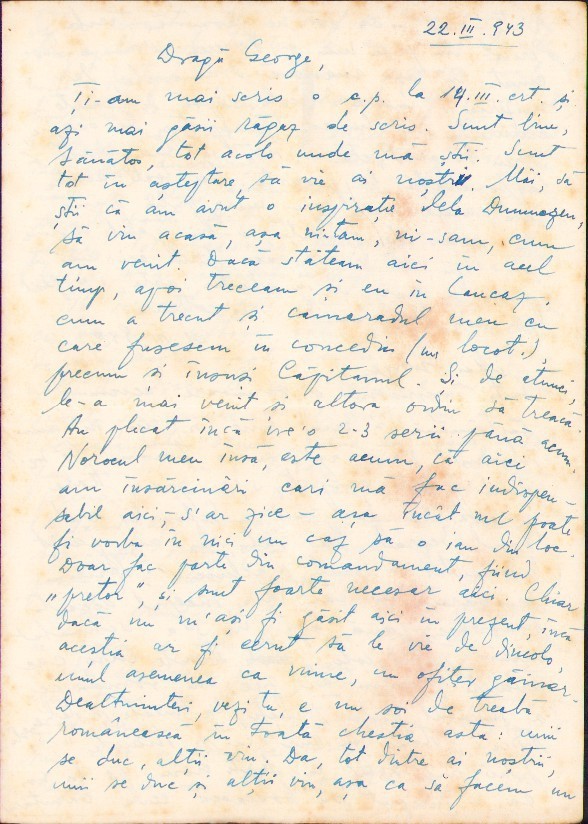 22.III.943
Dragă George,
Ți-am mai scris o c.p. la 14.III.crt. și
azi mai găsii răgaz de scris. Sunt bine,
sănătos, tot acolo unde mă știi. Sunt
tot în așteptare, să vie ai noștri. Măi, să
știi că am avut o inspirație dela Dumnezeu,
să vin acasă, așa nitam, ni-sam, cum
am venit. Dacă stăteam aici în acel
timp, apoi treceam și eu în Caucaz,
cum a trecut și camaradul meu cu
care fusesem în concediu (un locot.),
precum și însuși Căpitanul. Și de atunci,
le-a mai venit și altora ordin să treacă.
Au plecat încă vre'o 2-3 serii până acum
Norocul meu însă, este acum, că aici
am însărcinări cari mă fac indispen-
sabil aici,-s'ar zice - așa încât nu poate
fi vorba în nici un caz să o iau din loc.
Doar fac parte din comandament, fiind
„pretor", și sunt foarte necesar aici. Chiar
dacă nu m'aș fi găsit aici în prezent, încă
aceștia ar fi cerut să le vie de dincolo,
unul asemenea ca mine, un ofițer
Dealtminteri, vezi tu, e un soi de treabă
românească în toată chestia asta: unii
se duc, alții vin. Da, tot dintre ai noștri,
unii se duc și alții vin, așa ca să facem un